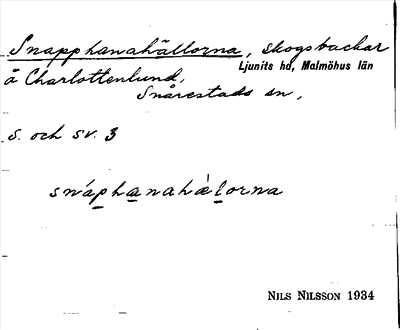 Snapphanahällorna, skogsbackar
Ljunits hd, Malmöhus län
å Charlottenlund,
Snårestads sn,
S. och SV. 3
snáphanahὰlorna
NILS NILSSON 1934